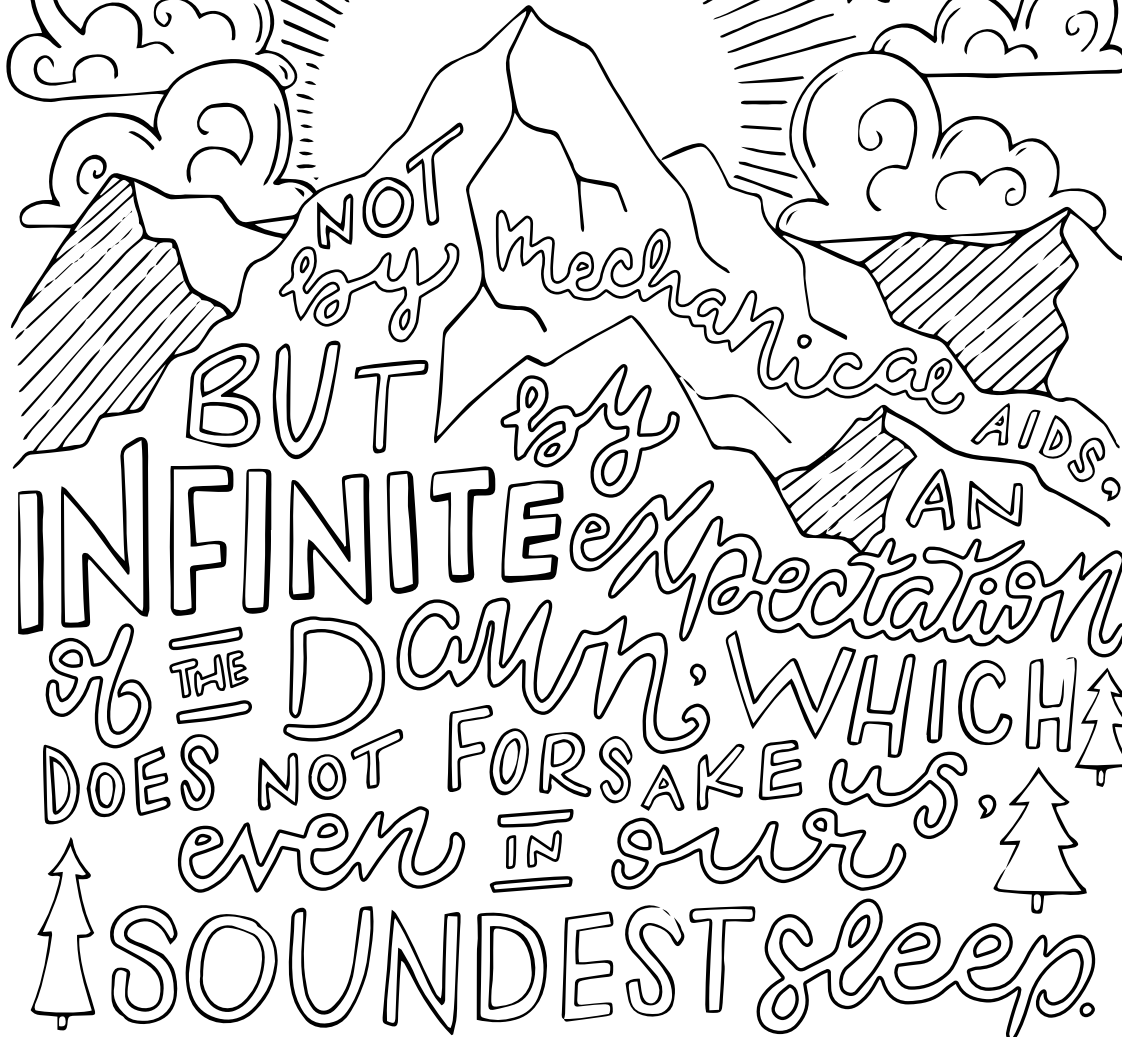 NOT
by mechanical
AIDS,
BUT by
AN
INFINITE expectation
of THE Dawn; WHICH
DOES NOT FORSAKE us,
even IN our
SOUNDEST sleep.